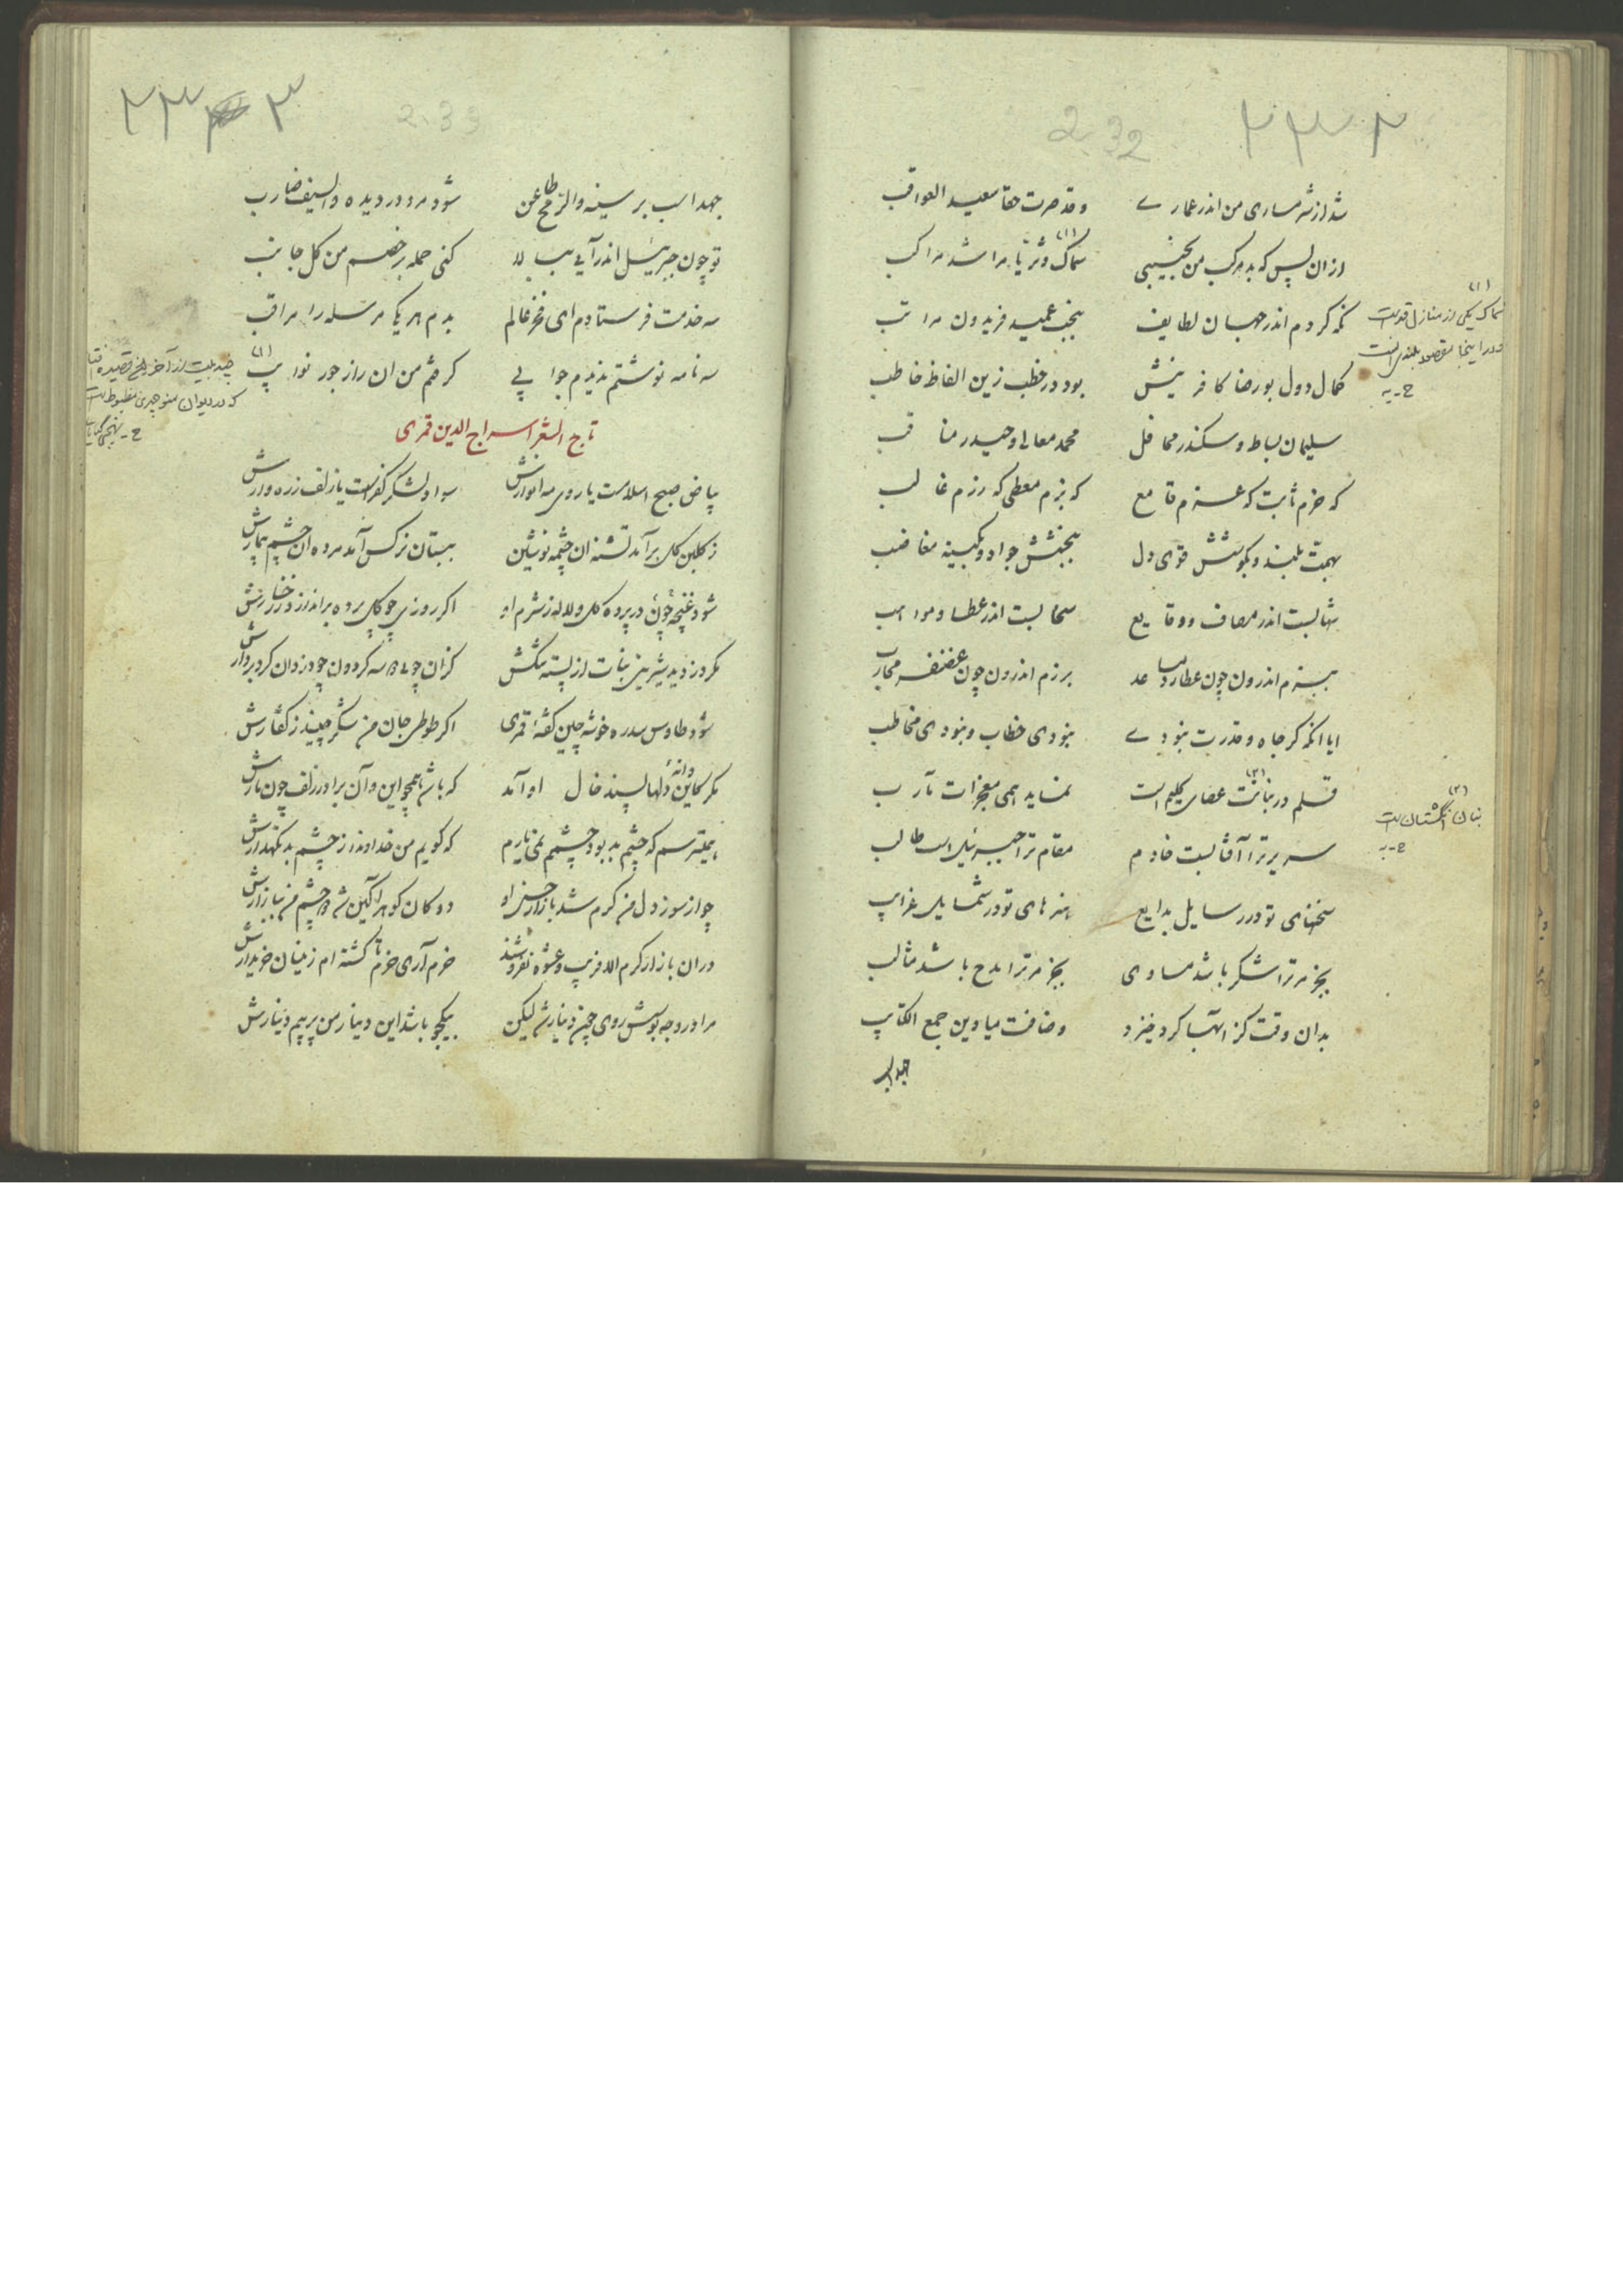 ۲۳۲
232
شد از شرمساری من اندر عماری وقد صرت حقا سعید العواقب
از ان پس که بد مرکب من نجیبی سماک و ثریا مرا شد مراکب
نگه کردم اندر جهان لطایف بنجب عمید فریدون مراتب
کمال دول بورضا کافرینش بود در خطب زین الفاظ خاطب
سلیمان بساط و سکندر محافل محمد معالی و حیدر مناقب
که حزم ثابت که عزم قامع که بزم معطی که رزم غالب
بهمت بلند و بکوشش قوی دل ببخشش جواد و بکینه مغاضب
شهابست اندر مصاف و وقایع سحابست اندر عطا و مواهب
ببزم اندرون چون عطارد مساعد برزم اندرون چون غضنفر محارب
ایا انکه کر جاه و قدرت نبودی نبودی خطاب و نبودی مخاطب
قلم در بنانت عصای کلیم است نماید همی معجزات مآرب
سریر ترا آفتابست خادم مقام ترا جبرئیل است طالب
سخنهای تو در رسایل بدایع هنرهای تو در شمایل غرایب
بجز مر ترا شکر باشد مساوی بجز مر ترا مدح باشد مثالب
بدان وقت کز اسبها کرد خیزد وضاقت میادین جمع الکتایب
(۱)
سماک یکی از منازل قمر است
و در اینجا مقصود بلندی است
ح-به
(۲)
بنان انگشتان است
ح-به
۲۳۳
233
جهد اسب بر سینه والرمح طاعن شود مرد در دیده والسیف ضارب
تو چون جبرئیل اندر آیی ببالا کنی حمله بر خصم من کل جانب
سه خدمت فرستادم ای فخر عالم بدم هر یکا مرسله را مراقب
سه نامه نوشتم ندیدم جوابی کرفتم من ان را ز جور نوایب
تاج الشعرا سراج الدین قمری
بیاض صبح اسلامست یا روی مه انوارش سواد لشکر کفرست یا زلف زره وارش
ز کلبن کل برآمد تشنه ان چشمه نوشین ببستان نرکس آمد مرده ان چشم بیمارش
شود غنچه چون در پرده کل و لاله ز شرم او اکر روزی چو کل پرده براندازد ز رخسارش
مکر دزدید شیرینی نبات از پسته تنکش کزان چو سه کردون چو دزدان کرد بر دارش
شود طاوس سدره خوشه چین کفته قمری اکر طوطی جان من شکر چیند ز کفتارش
مکر کاین دانه دلها پسند خال او آمد که باشد همچو این و آن برادر زلف چون مارش
همیترسم که چشم بد بود چشمم نمی یارم که کویم من خداوندا ز چشم بد نکهدارش
چو از سوز دل من کرم شد بازار حسن او دو کان کوهر آکین شد چشم من ببازارش
در ان بازار کرم الا فریب و عشوه نفروشند خرم آری خرم تا کشته ام زینسان خریدارش
مرا در وجه بوسش روی چون دینار شد لیکن بیکجو باشد این دینار من پر بیم دینارش
(۱)
چند بیت از آخر این قصیده
که در دیوان منوچهری مضبوط است